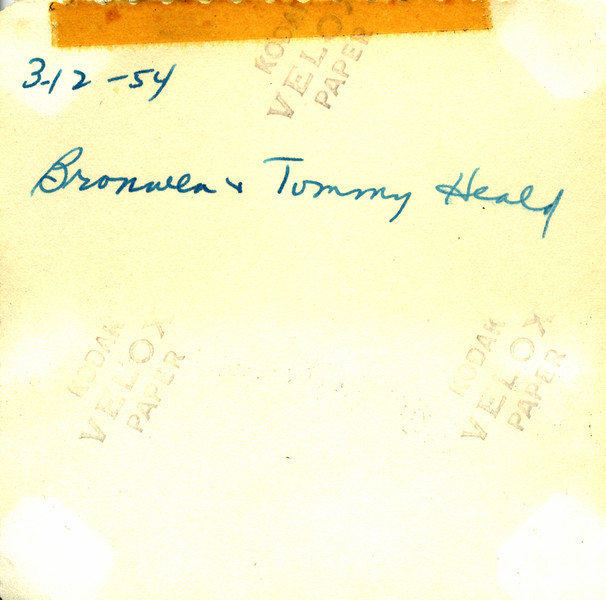 3-12-54
KODAK
VELOX
PAPER
Bronwen & Tommy Heald
KODAK
VELOX
PAPER
KODAK
VELOX
PAPER